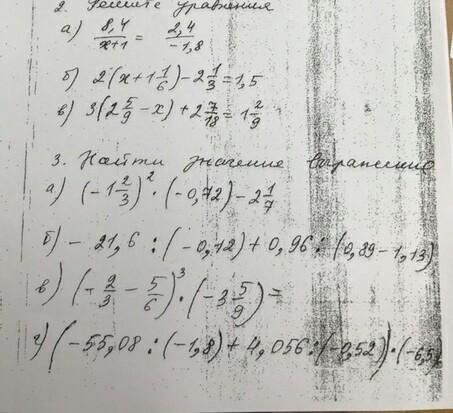 2. Решите уравнения
а) 8,4/(x+1) = 2,4/(-1,8)
б) 2(x+1 1/6)-2 1/3=1,5
в) 3(2 5/9-x)+2 7/18=1 2/9
3. Найти значение выражения
а) (-1 2/3)²·(-0,72)-2 1/7
б) -21,6:(-0,12)+0,96:(0,89-1,13)
в) (-2/3-5/6)³·(-3 5/9)=
г) (-55,08:(-1,8)+4,056:(-0,52))·(-6,5)